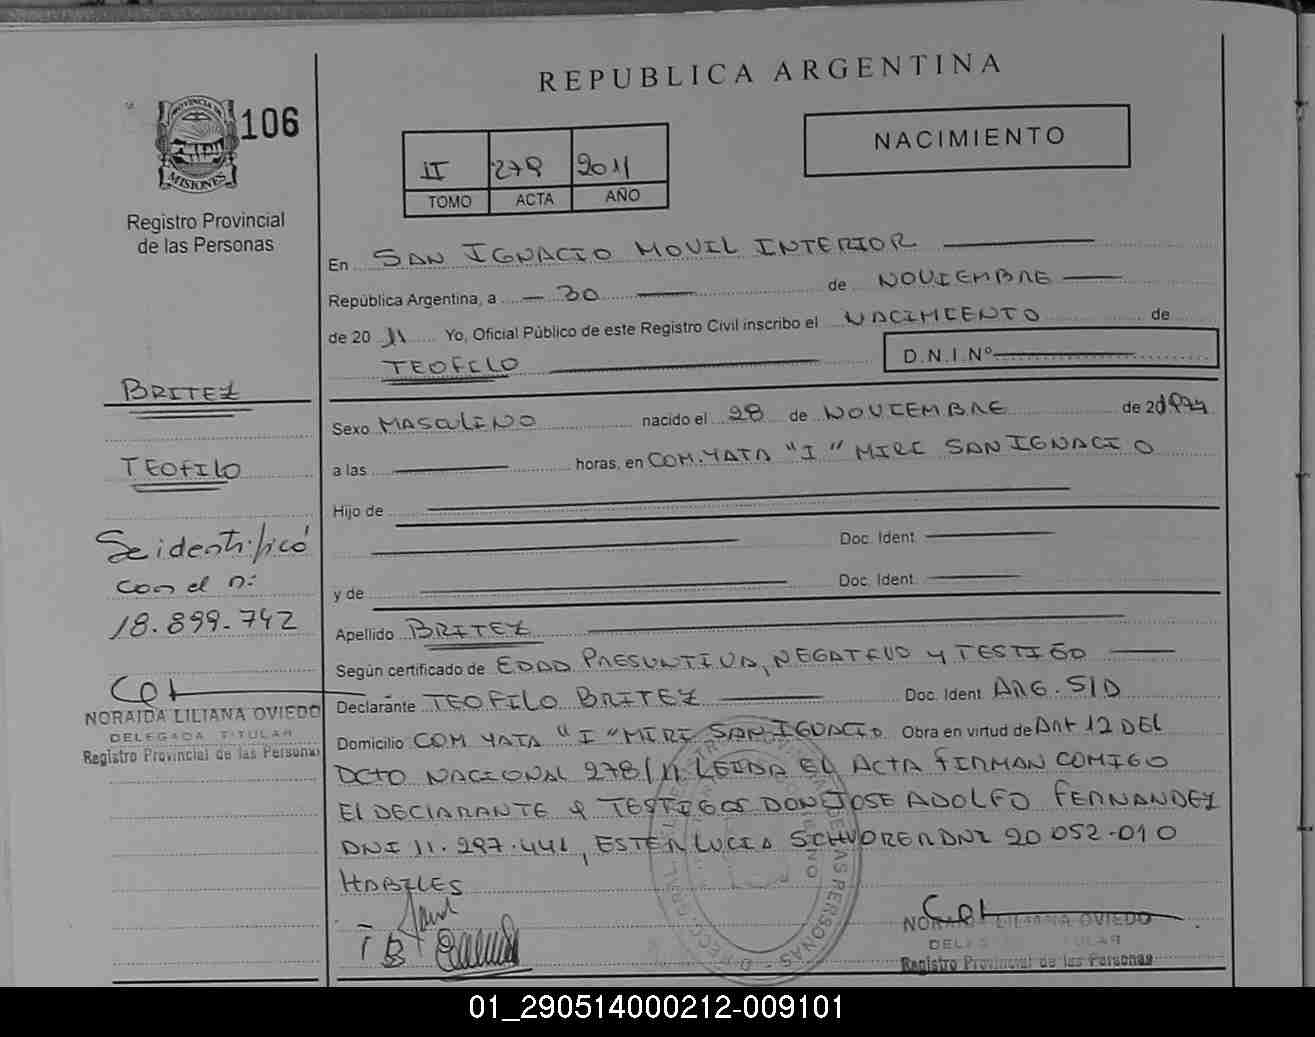 REPUBLICA ARGENTINA
PROVINCIA DE
MISIONES
106
Registro Provincial
de las Personas
II 279 2011
TOMO ACTA AÑO
NACIMIENTO
En SAN IGNACIO MOVIL INTERIOR
República Argentina, a 30 de NOVIEMBRE
de 20 11 Yo, Oficial Público de este Registro Civil inscribo el NACIMIENTO de
TEOFILO D.N.I.Nº
Sexo MASCULINO nacido el 28 de NOVIEMBRE de 20 1974
a las horas, en COM.YATA "I" MIRI SAN IGNACIO
Hijo de
Doc. Ident.
y de Doc. Ident.
Apellido BRITEZ
Según certificado de EDAD PRESUNTIVA, NEGATIVO Y TESTIGO
Declarante TEOFILO BRITEZ Doc. Ident. ARG. S/D
Domicilio COM YATA "I" MIRI SAN IGNACIO Obra en virtud de Art 12 DEL
DCTO NACIONAL 278/11 LEIDA EL ACTA FIRMAN COMIGO
El DECLARANTE Y TESTIGOS DON JOSE ADOLFO FERNANDEZ
DNI 11.297.441, ESTER LUCIA SCHVORER DNI 20 052.010
HABILES
T B
BRITEZ
TEOFILO
Se identificó
con el n:
18.899.742
NORAIDA LILIANA OVIEDO
DELEGADA TITULAR
Registro Provincial de las Personas
NORAIDA LILIANA OVIEDO
DELEGADA TITULAR
Registro Provincial de las Personas
01_290514000212-009101